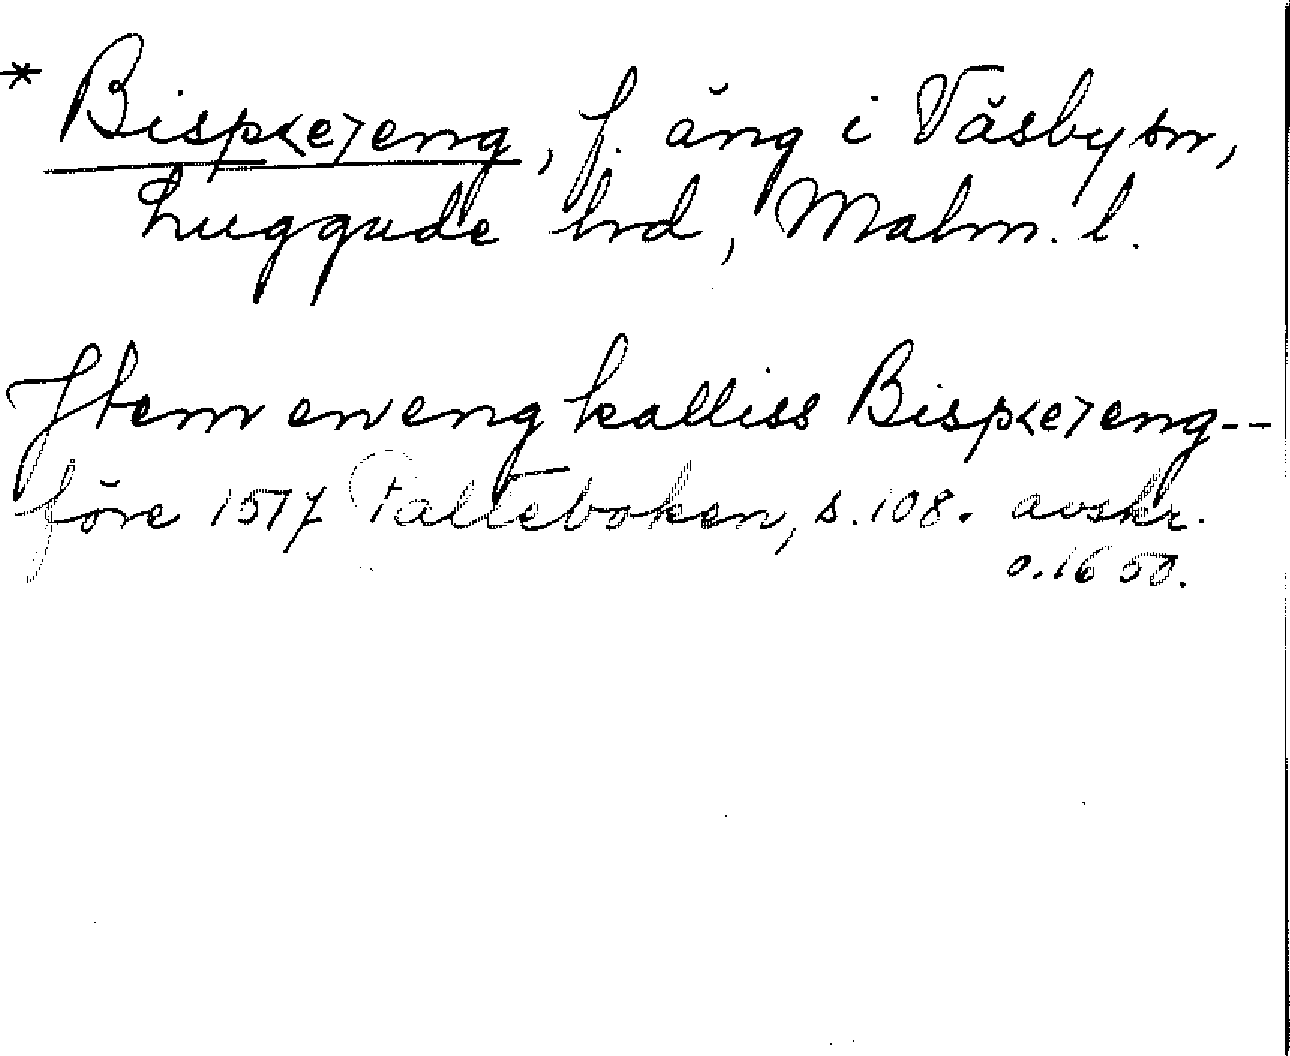 * Bisp<e>eng, f. äng i Väsby sn,
Luggude hd, Malm. l.
Jtem en eng kalliss Bisp<e>eng--
före 1517 Palteboken, s. 108. avskr.
o. 1650.